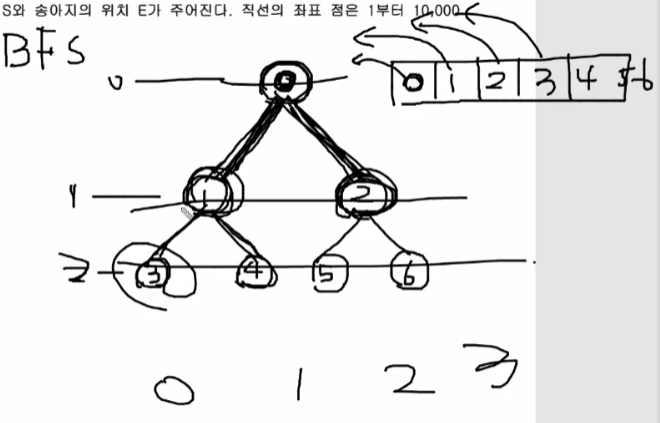 S와 송아지의 위치 E가 주어진다. 직선의 좌표 점은 1부터 10,000
BFS
0 0 0 1 2 3 4 5 6
1 1 2
2 3 4 5 6
0 1 2 3